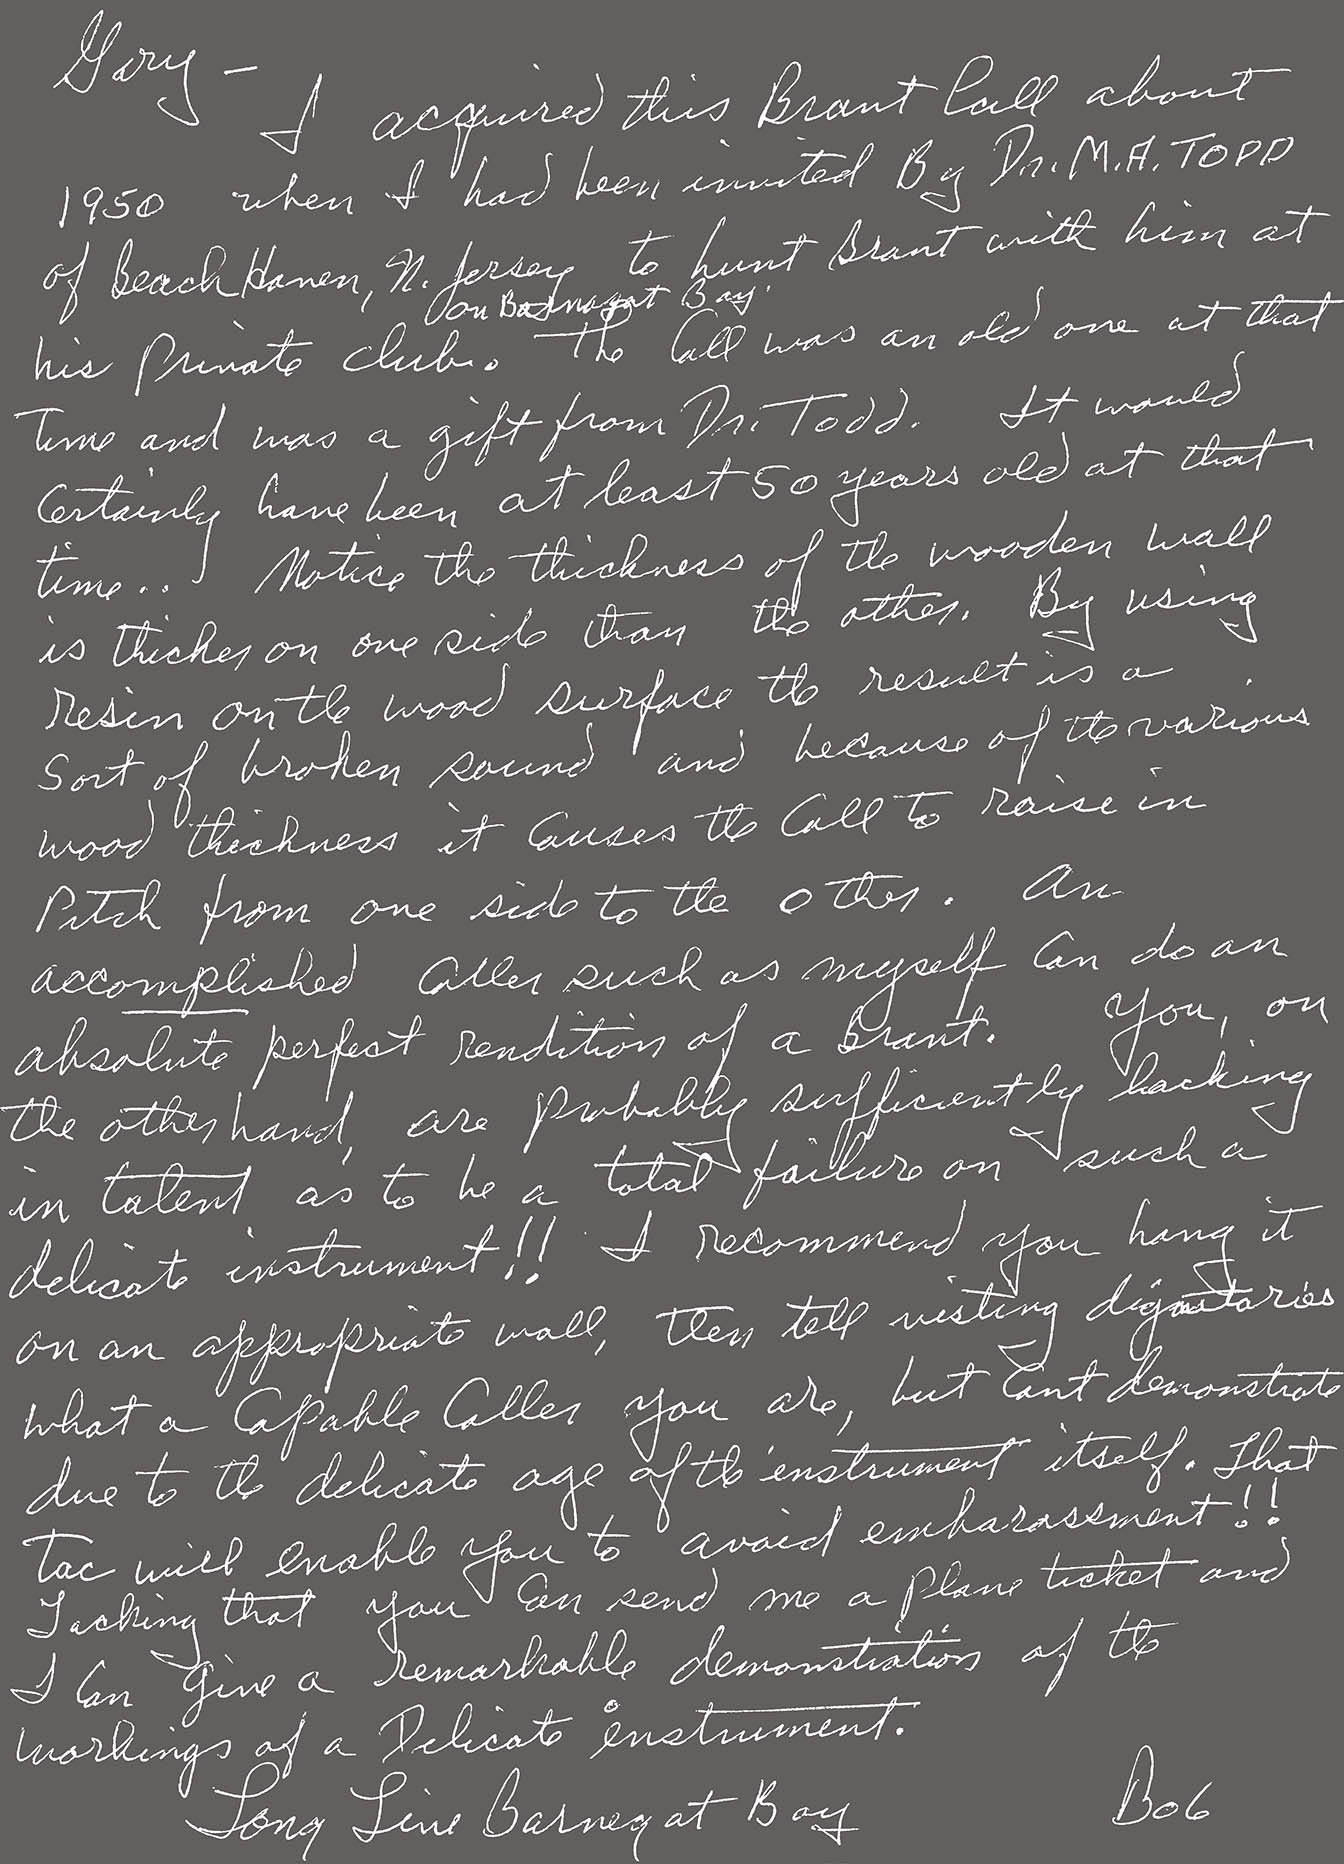 Gary –
I acquired this Brant Call about
1950 when I had been invited By Dr. M.A. TODD
of Beach Haven, N. Jersey to hunt Brant with him at
on Barnegat Bay.
his Private club. The Call was an old one at that
Time and was a gift from Dr. Todd. It would
Certainly have been at least 50 years old at that
time.. Notice the thickness of the wooden wall
is thicker on one side than the other. By using
resin on the wood surface the result is a
Sort of broken sound and because of the various
wood thickness it Causes the Call to raise in
Pitch from one side to the other. An
accomplished Caller such as myself Can do an
absolute perfect rendition of a Brant. You, on
the other hand, are probably sufficiently lacking
in talent as to be a total failure on such a
delicate instrument!! I recommend you hang it
on an appropriate wall, then tell visting dignitaries
what a Capable Caller you are, but Cant demonstrate
due to the delicate age of the instrument itself. That
Tac will enable you to avoid embarassment!!
Lacking that you Can send me a plane ticket and
I Can Give a remarkable demonstration of the
workings of a Delicate instrument.
Long Live Barnegat Bay Bob